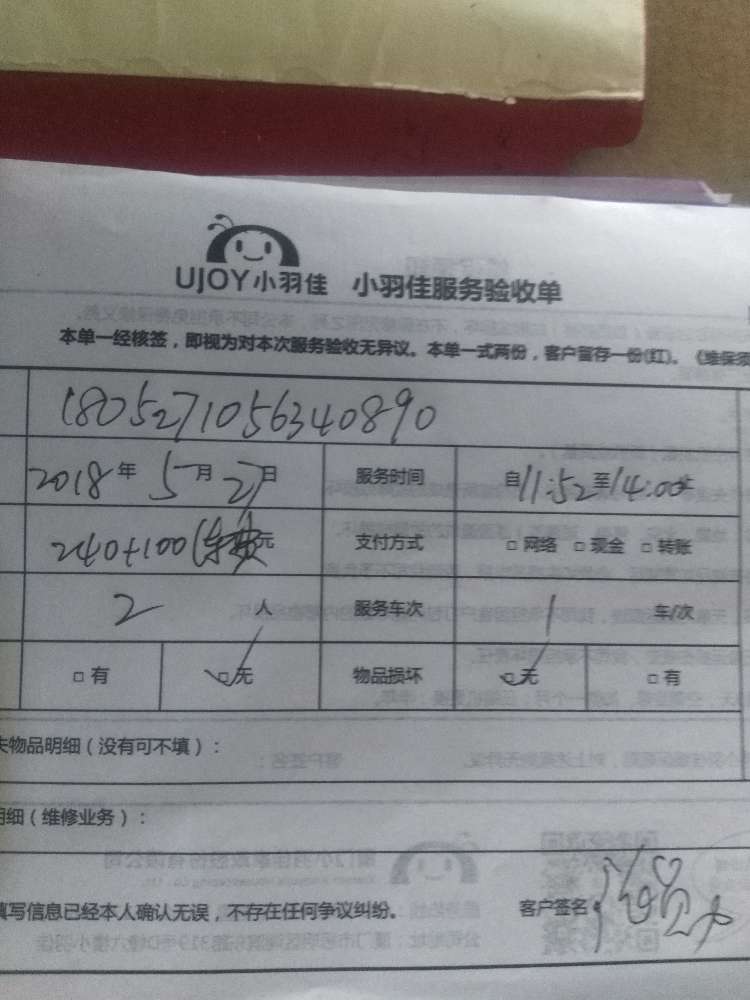 UJOY小羽佳 小羽佳服务验收单
本单一经核签，即视为对本次服务验收无异议。本单一式两份，客户留存一份(红)。《维保须
1805271056340890
2018年 5月27日 服务时间 自11:52至14:00止
240+100( 元 支付方式 □网络 □现金 □转账
2 人 服务车次 1 车/次
□有 □无 物品损坏 □无 □有
失物品明细（没有可不填）：
明细（维修业务）：
填写信息已经本人确认无误，不存在任何争议纠纷。 客户签名：